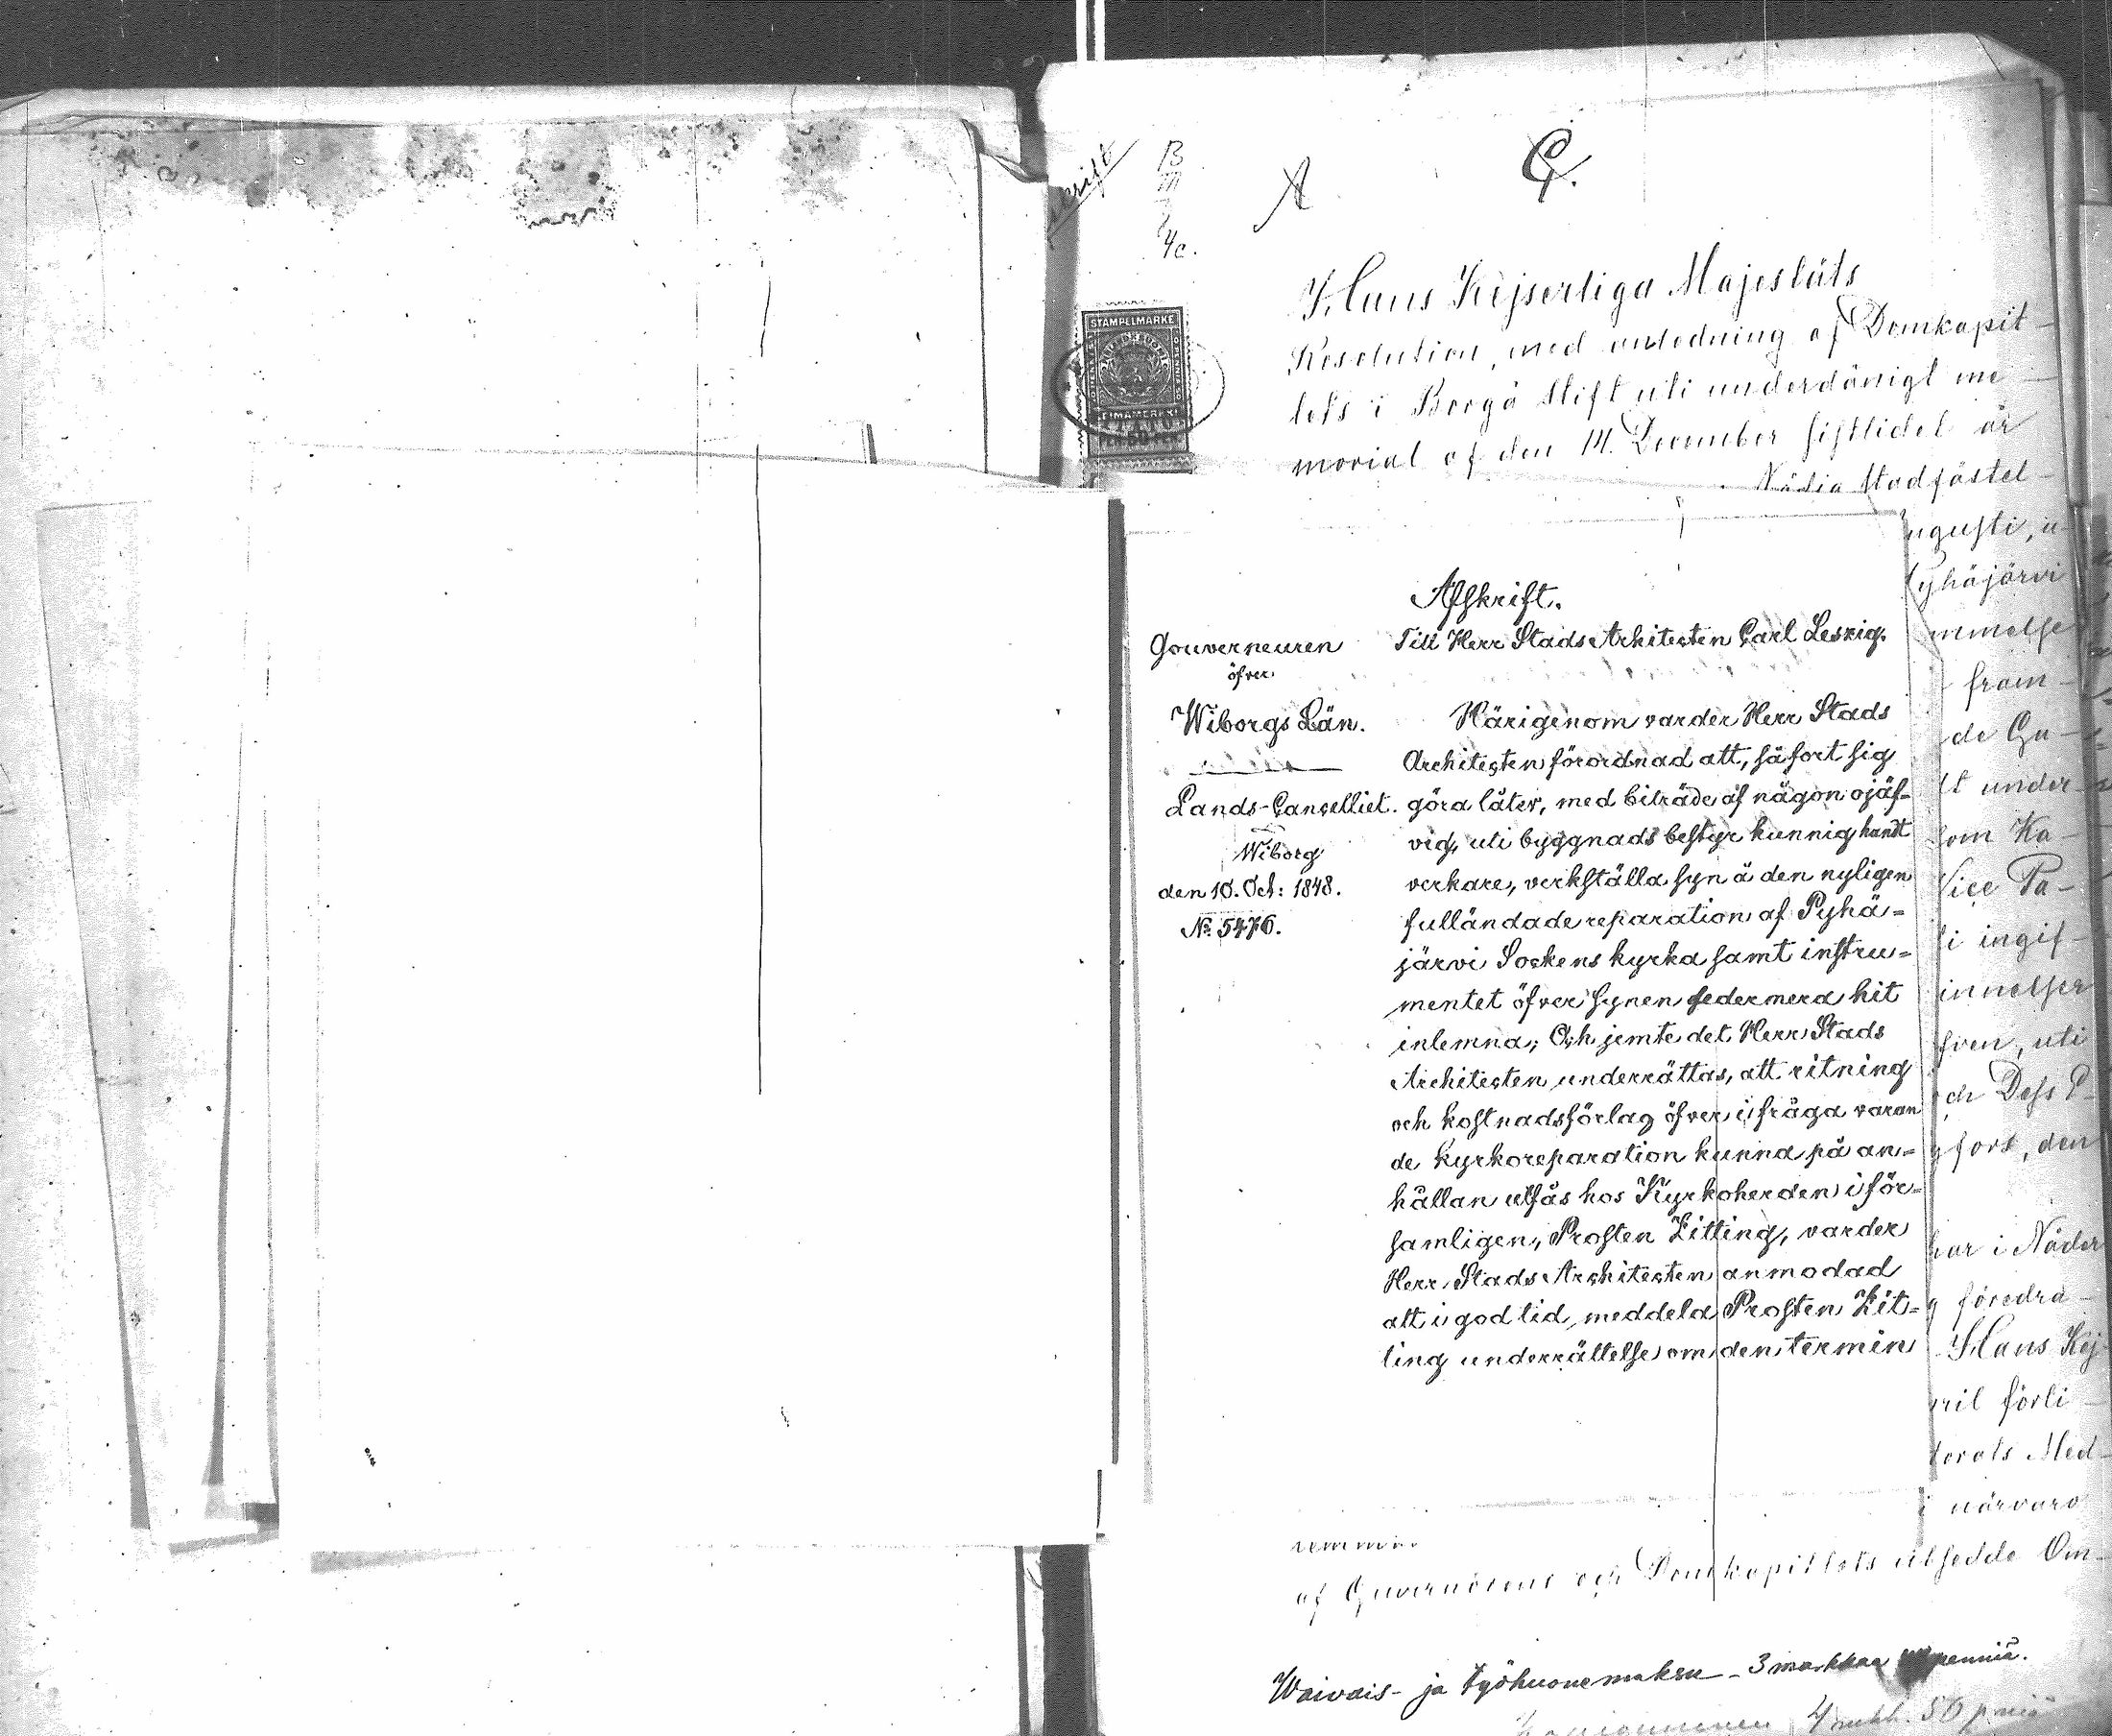 B
4c.
A
C.
STÄMPELMARKE
Hans Kejserliga Majestäts
Resolution, med anledning af Domkapit-
lets i Borgå Stift uti underdånigt me-
morial af den 14. December sistlidet år
Nådig Stadfästel-
ugusti, u-
yhäjärvi
mmelse
fram-
de Gu-
lt under-
som Ka-
Vice Pa-
i ingif-
innelser
fven, uti
och Dess P-
gfors, den
har i Nåder
g föredra-
Hans Kej-
ril förli-
torats Med-
i närvaro
Afskrift.
Gouverneuren
öfver
Wiborgs Län.
Lands-Cancelliet.
Wiborg
den 10. Oct: 1848.
No. 5476.
Till Herr Stads Arkitecten Carl Leszig.
Härigenom varder Herr Stads
Architecten förordnad att, såfort sig
göra låter, med biträde af någon ojäf-
vig, uti byggnads bestyr kunnig handt
verkare, verkställa syn å den nyligen
fulländade reparation af Pyhä-
järvi Sockens kyrka samt instru-
mentet öfver synen sedermera hit
inlemna; Och jemte det Herr Stads
Architecten underrättas, att ritning
och kostnadsförlag öfver i fråga varan
de kyrkoreparation kunna på an-
hållan utfås hos Kyrkoherden i för-
samligen, Prosten Zitting, varder
Herr Stads Architecten anmodad
att i god tid, meddela Prosten Zit-
ting underrättelse om den termin
af Guvernörens och Domkapitlets utsedde Om-
Waivais- ja työhuonemaksu - 3 markkaa penniä.
4 mkk. 50 pniä